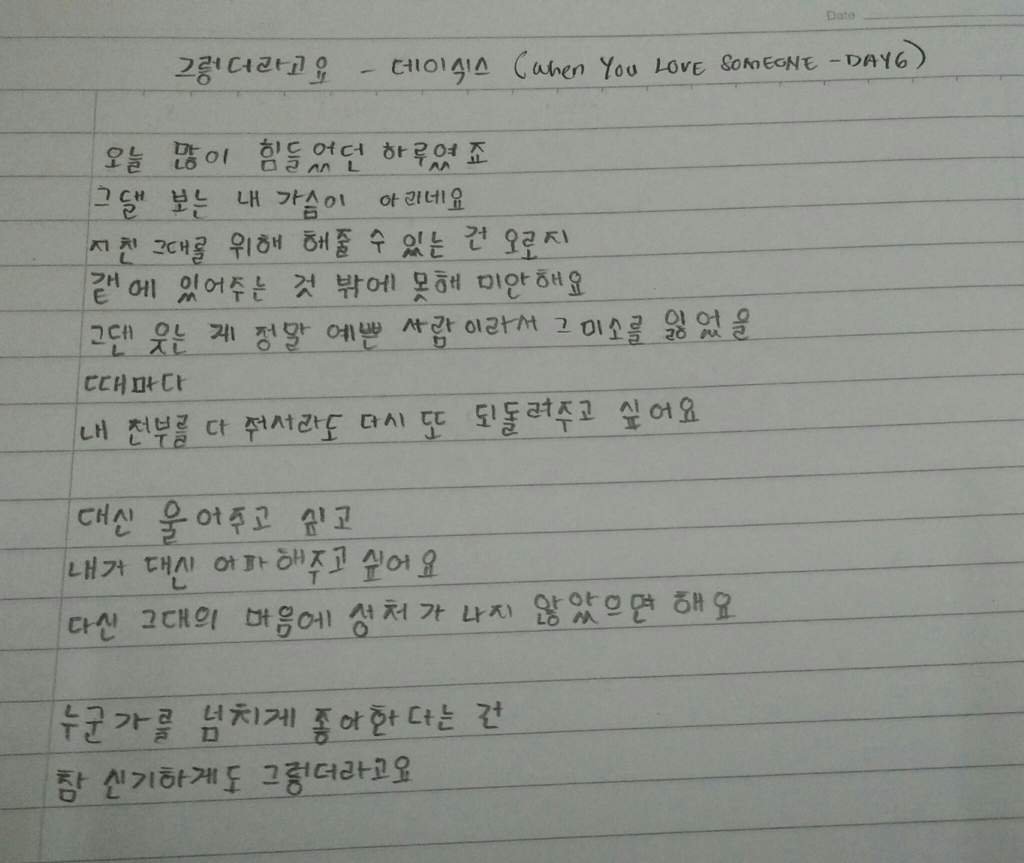 Date
그렇더라고요 - 데이식스 (When You LOVE SOMEONE - DAY6)
오늘 많이 힘들었던 하루였죠
그댈 보는 내 가슴이 아리네요
지친 그대를 위해 해줄 수 있는 건 오로지
곁에 있어주는 것 밖에 못해 미안해요
그댄 웃는 게 정말 예쁜 사람이라서 그 미소를 잃었을
때마다
내 전부를 다 줘서라도 다시 또 되돌려주고 싶어요
대신 울어주고 싶고
내가 대신 아파해주고 싶어요
다신 그대의 마음에 상처가 나지 않았으면 해요
누군가를 넘치게 좋아한다는 건
참 신기하게도 그렇더라고요